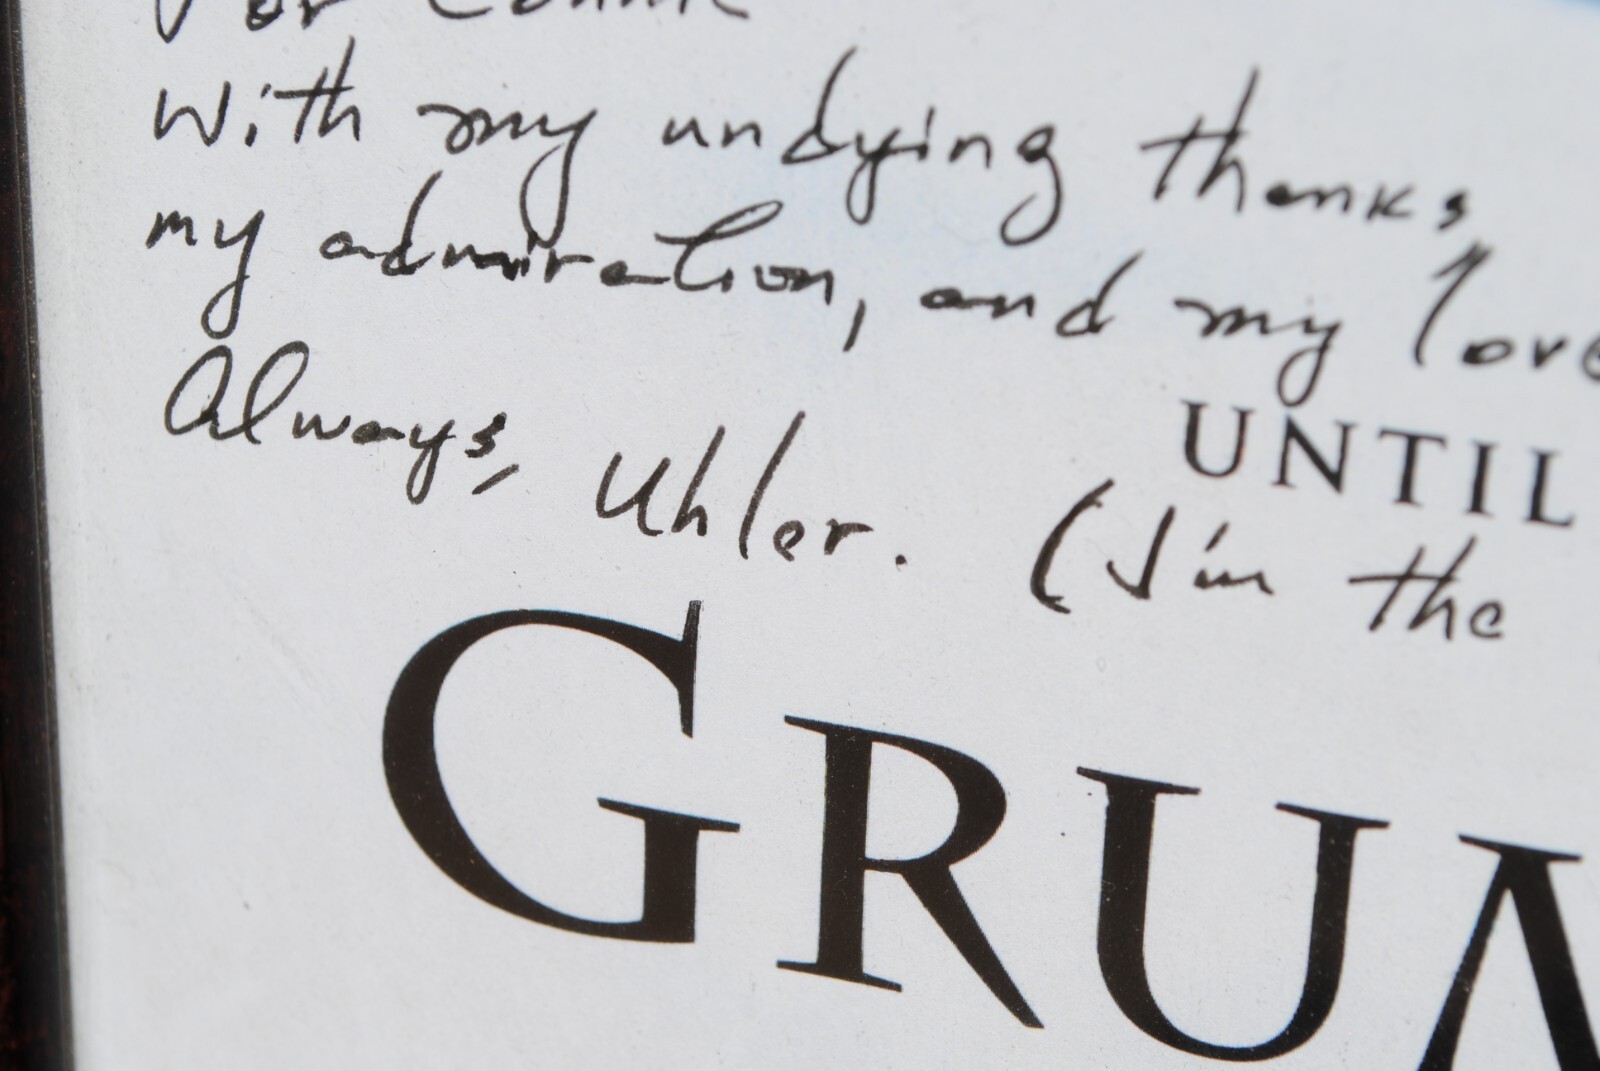 For Connie
With my undying thanks,
my admiration, and my love
Always, Uhler. (I'm the
UNTIL
GRUM